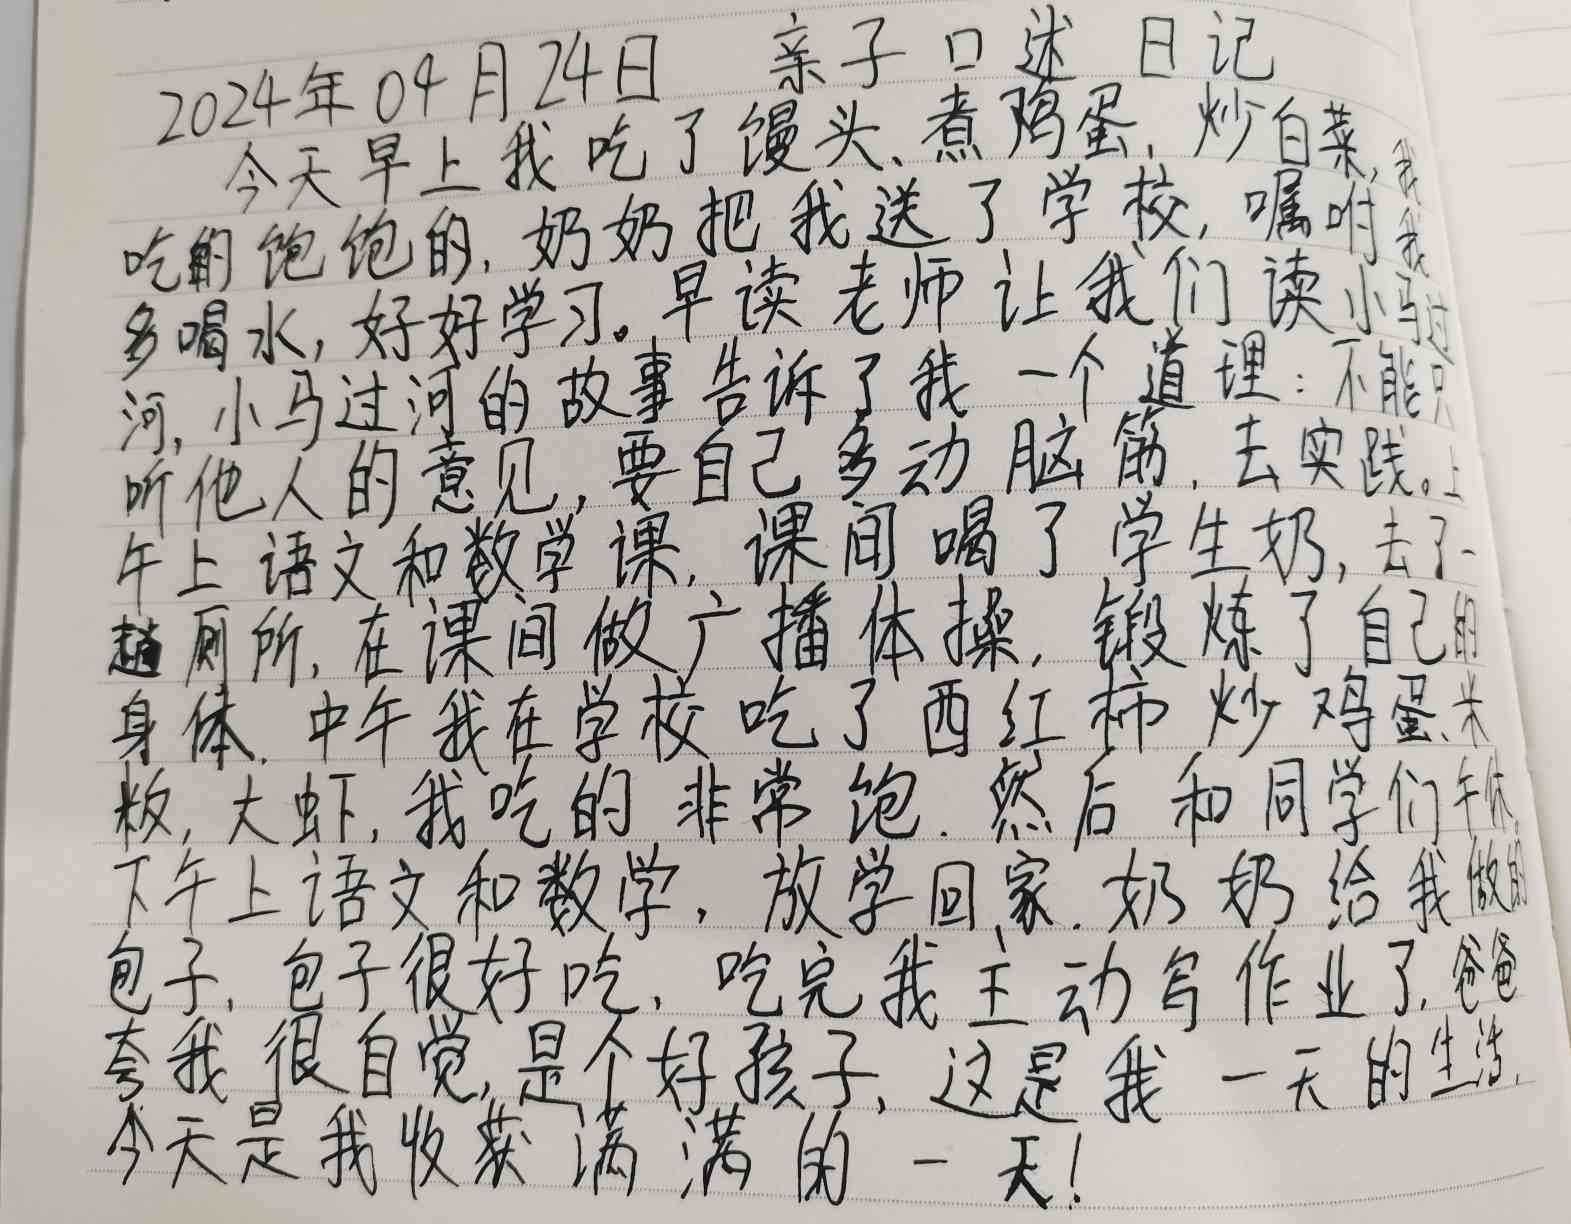 2024年04月24日 亲子口述日记
今天早上我吃了馒头、煮鸡蛋，炒白菜，我
吃的饱饱的，奶奶把我送了学校，嘱咐我
多喝水，好好学习。早读老师让我们读小马过
河，小马过河的故事告诉了我一个道理：不能只
听他人的意见，要自己多动脑筋，去实践。上
午上语文和数学课，课间喝了学生奶，去了一
趟厕所，在课间做广播体操，锻炼了自己的
身体．中午我在学校吃了西红柿炒鸡蛋、米
粄，大虾，我吃的非常饱．然后和同学们午休。
下午上语文和数学，放学回家．奶奶给我做的
包子，包子很好吃，吃完我主动写作业了，爸爸
夸我很自觉，是个好孩子，这是我一天的生活，
今天是我收获满满的一天！